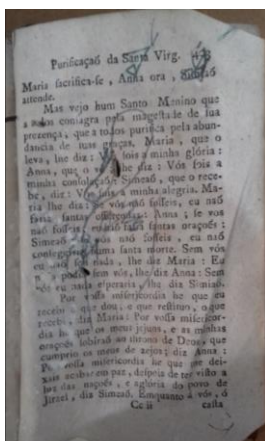 Purificaçaõ da Santa Virg.
Maria sacrifica-se, Anna ora, Simeaõ
attende.
Mas vejo hum Santo Menino que
a todos consagra pela magestade de sua
prezença, que a todos purifica pela abun-
dancia de suas graças. Maria, que o
leva, lhe diz: Vós sois a minha glória:
Anna, que o vê, lhe diz: Vós sois a
minha consolaçaõ: Simeaõ, que o rece-
be, diz: Vós sois a minha alegria. Ma-
ria lhe diz: se vós naõ fosseis, eu naõ
faria santas offerendas: Anna; se vos
naõ fosseis, santas orações:
Simeaõ vós naõ fosseis, eu naõ
huma santa morte. Sem vós
eu naõ nada, lhe diz Maria: Eu
n sem vós, lhe diz Anna: Sem
vós eu nada esperaria, lhe diz Simeaõ.
Por vossa misericordia he que eu
recebi o que dou, e que restituo, o que
recebi, diz Maria: Por vossa misericor-
dia he que os meus jejuns, e as minhas
orações sobiraõ ao throno de Deos, que
cumprio os meus dezejos; diz Anna:
Por vossa misericordia he que me dei-
xais acabar em paz, despois de ter visto a
luz das nações, e a gloria do povo de
Israel, diz Simeaõ. Emquanto a vós, ó
Cc ii casta